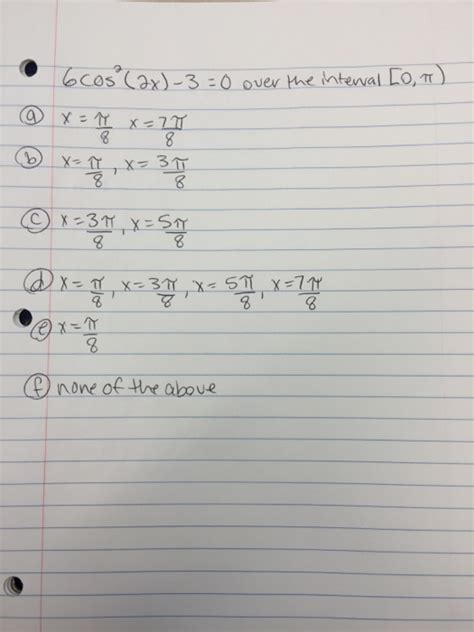 6cos²(2x)-3=0 over the interval [0,π)
ⓐ x=π/8 x=7π/8
ⓑ x=π/8, x=3π/8
ⓒ x=3π/8, x=5π/8
ⓓ x=π/8, x=3π/8, x=5π/8, x=7π/8
ⓔ x=π/8
ⓕ none of the above